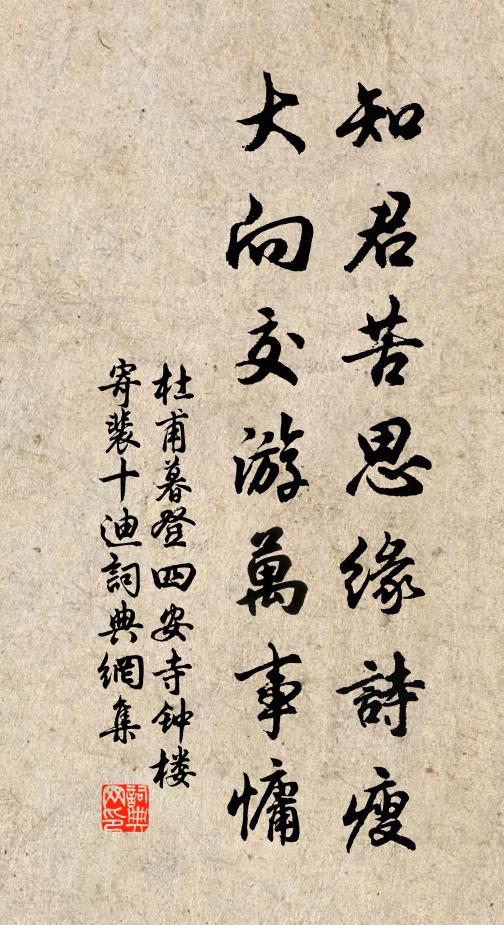 知君苦思缘詩瘦
大向交游萬事慵
杜甫暮登四安寺钟楼
寄裴十迪詞典網集
詞典
网印